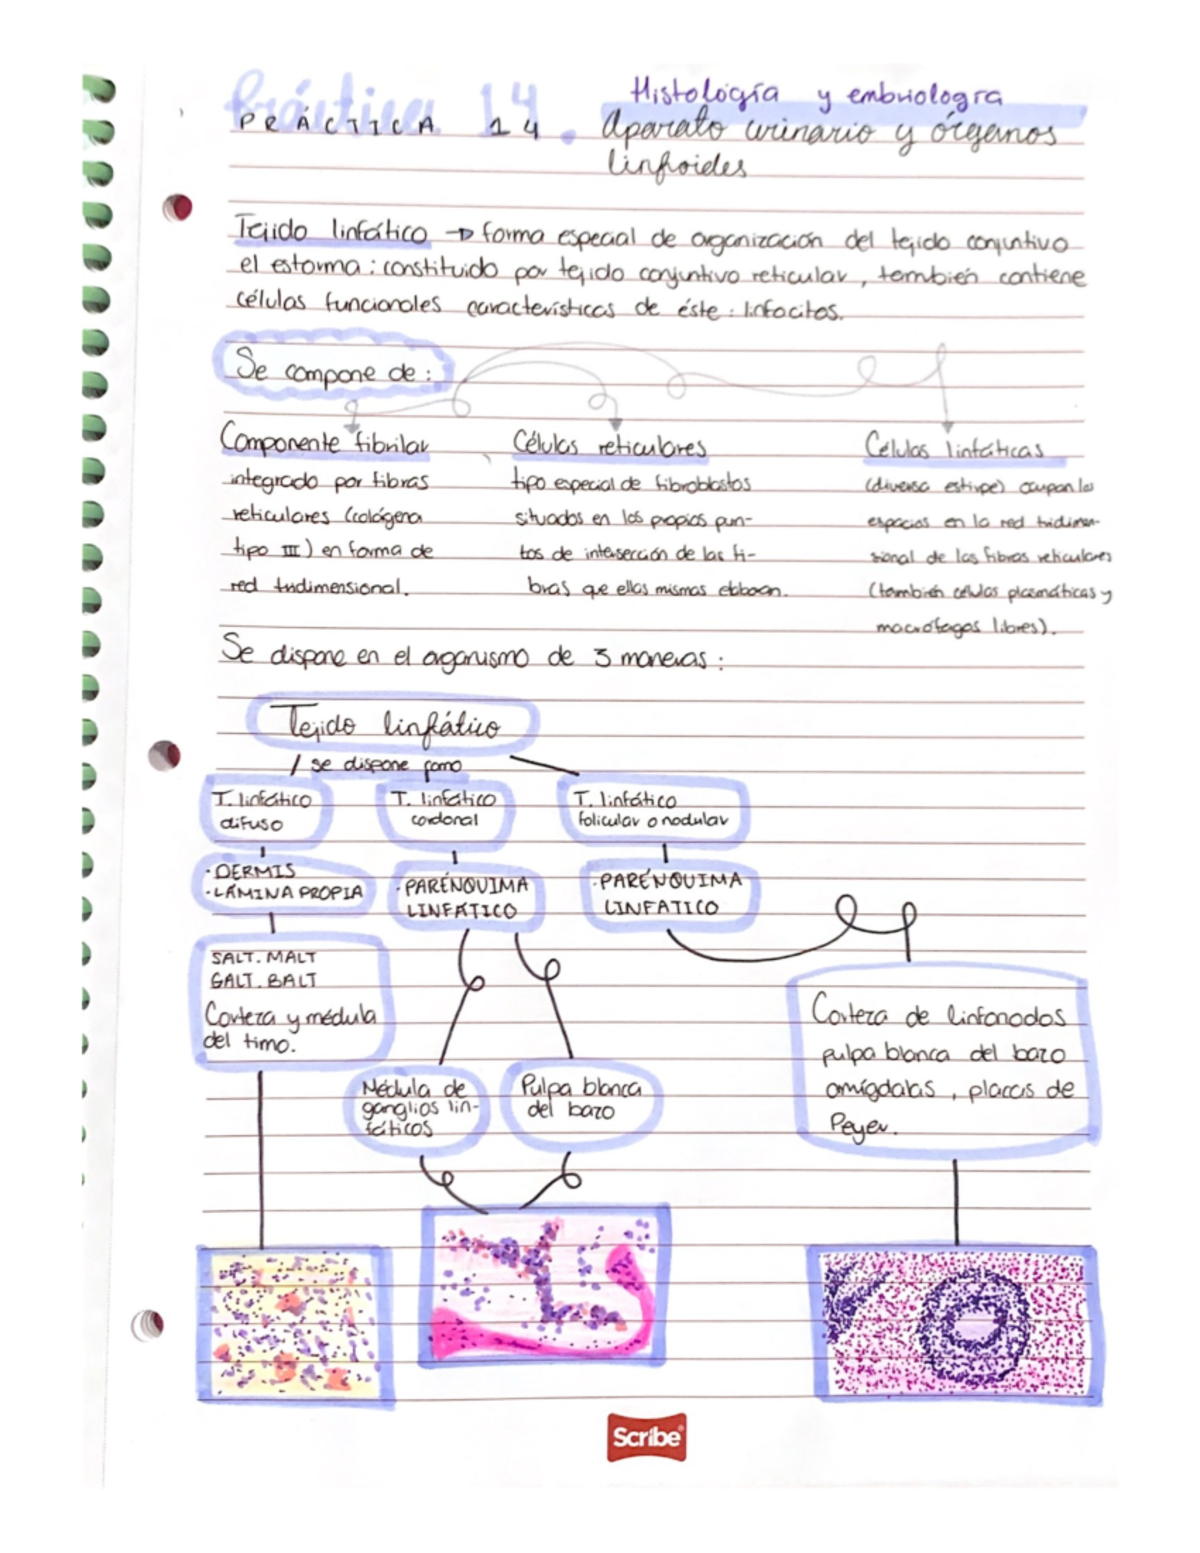 Práctica 14.
Histología y embriología
PRÁCTICA 14
Aparato urinario y órganos
linfoides
Tejido linfático → forma especial de organización del tejido conjuntivo
el estorma : constituido por tejido conjuntivo reticular, también contiene
células funcionales características de éste : linfocitos.
Se compone de :
Componente fibrilar
integrado por fibras
reticulares (colágena
tipo III) en forma de
red tridimensional.
Células reticulares
tipo especial de fibroblastos
situados en los propios pun-
tos de intersección de las fi-
bras que ellas mismas elaboran.
Células linfáticas
(diversa estirpe) ocupan los
espacios en la red tridimen-
sional de las fibras reticulares
(también células plasmáticas y
macrófagos libres).
Se dispone en el organismo de 3 maneras :
Tejido linfático
se dispone como
T. linfático
difuso
T. linfático
cordonal
T. linfático
folicular o nodular
·DERMIS
·LÁMINA PROPIA
·PARÉNQUIMA
LINFÁTICO
·PARÉNQUIMA
LINFATICO
SALT. MALT
GALT. BALT
Corteza y médula
del timo.
Corteza de linfonodos
pulpa blanca del bazo
amígdalas, placas de
Peyer.
Médula de
ganglios lin-
fáticos
Pulpa blanca
del bazo
Scribe